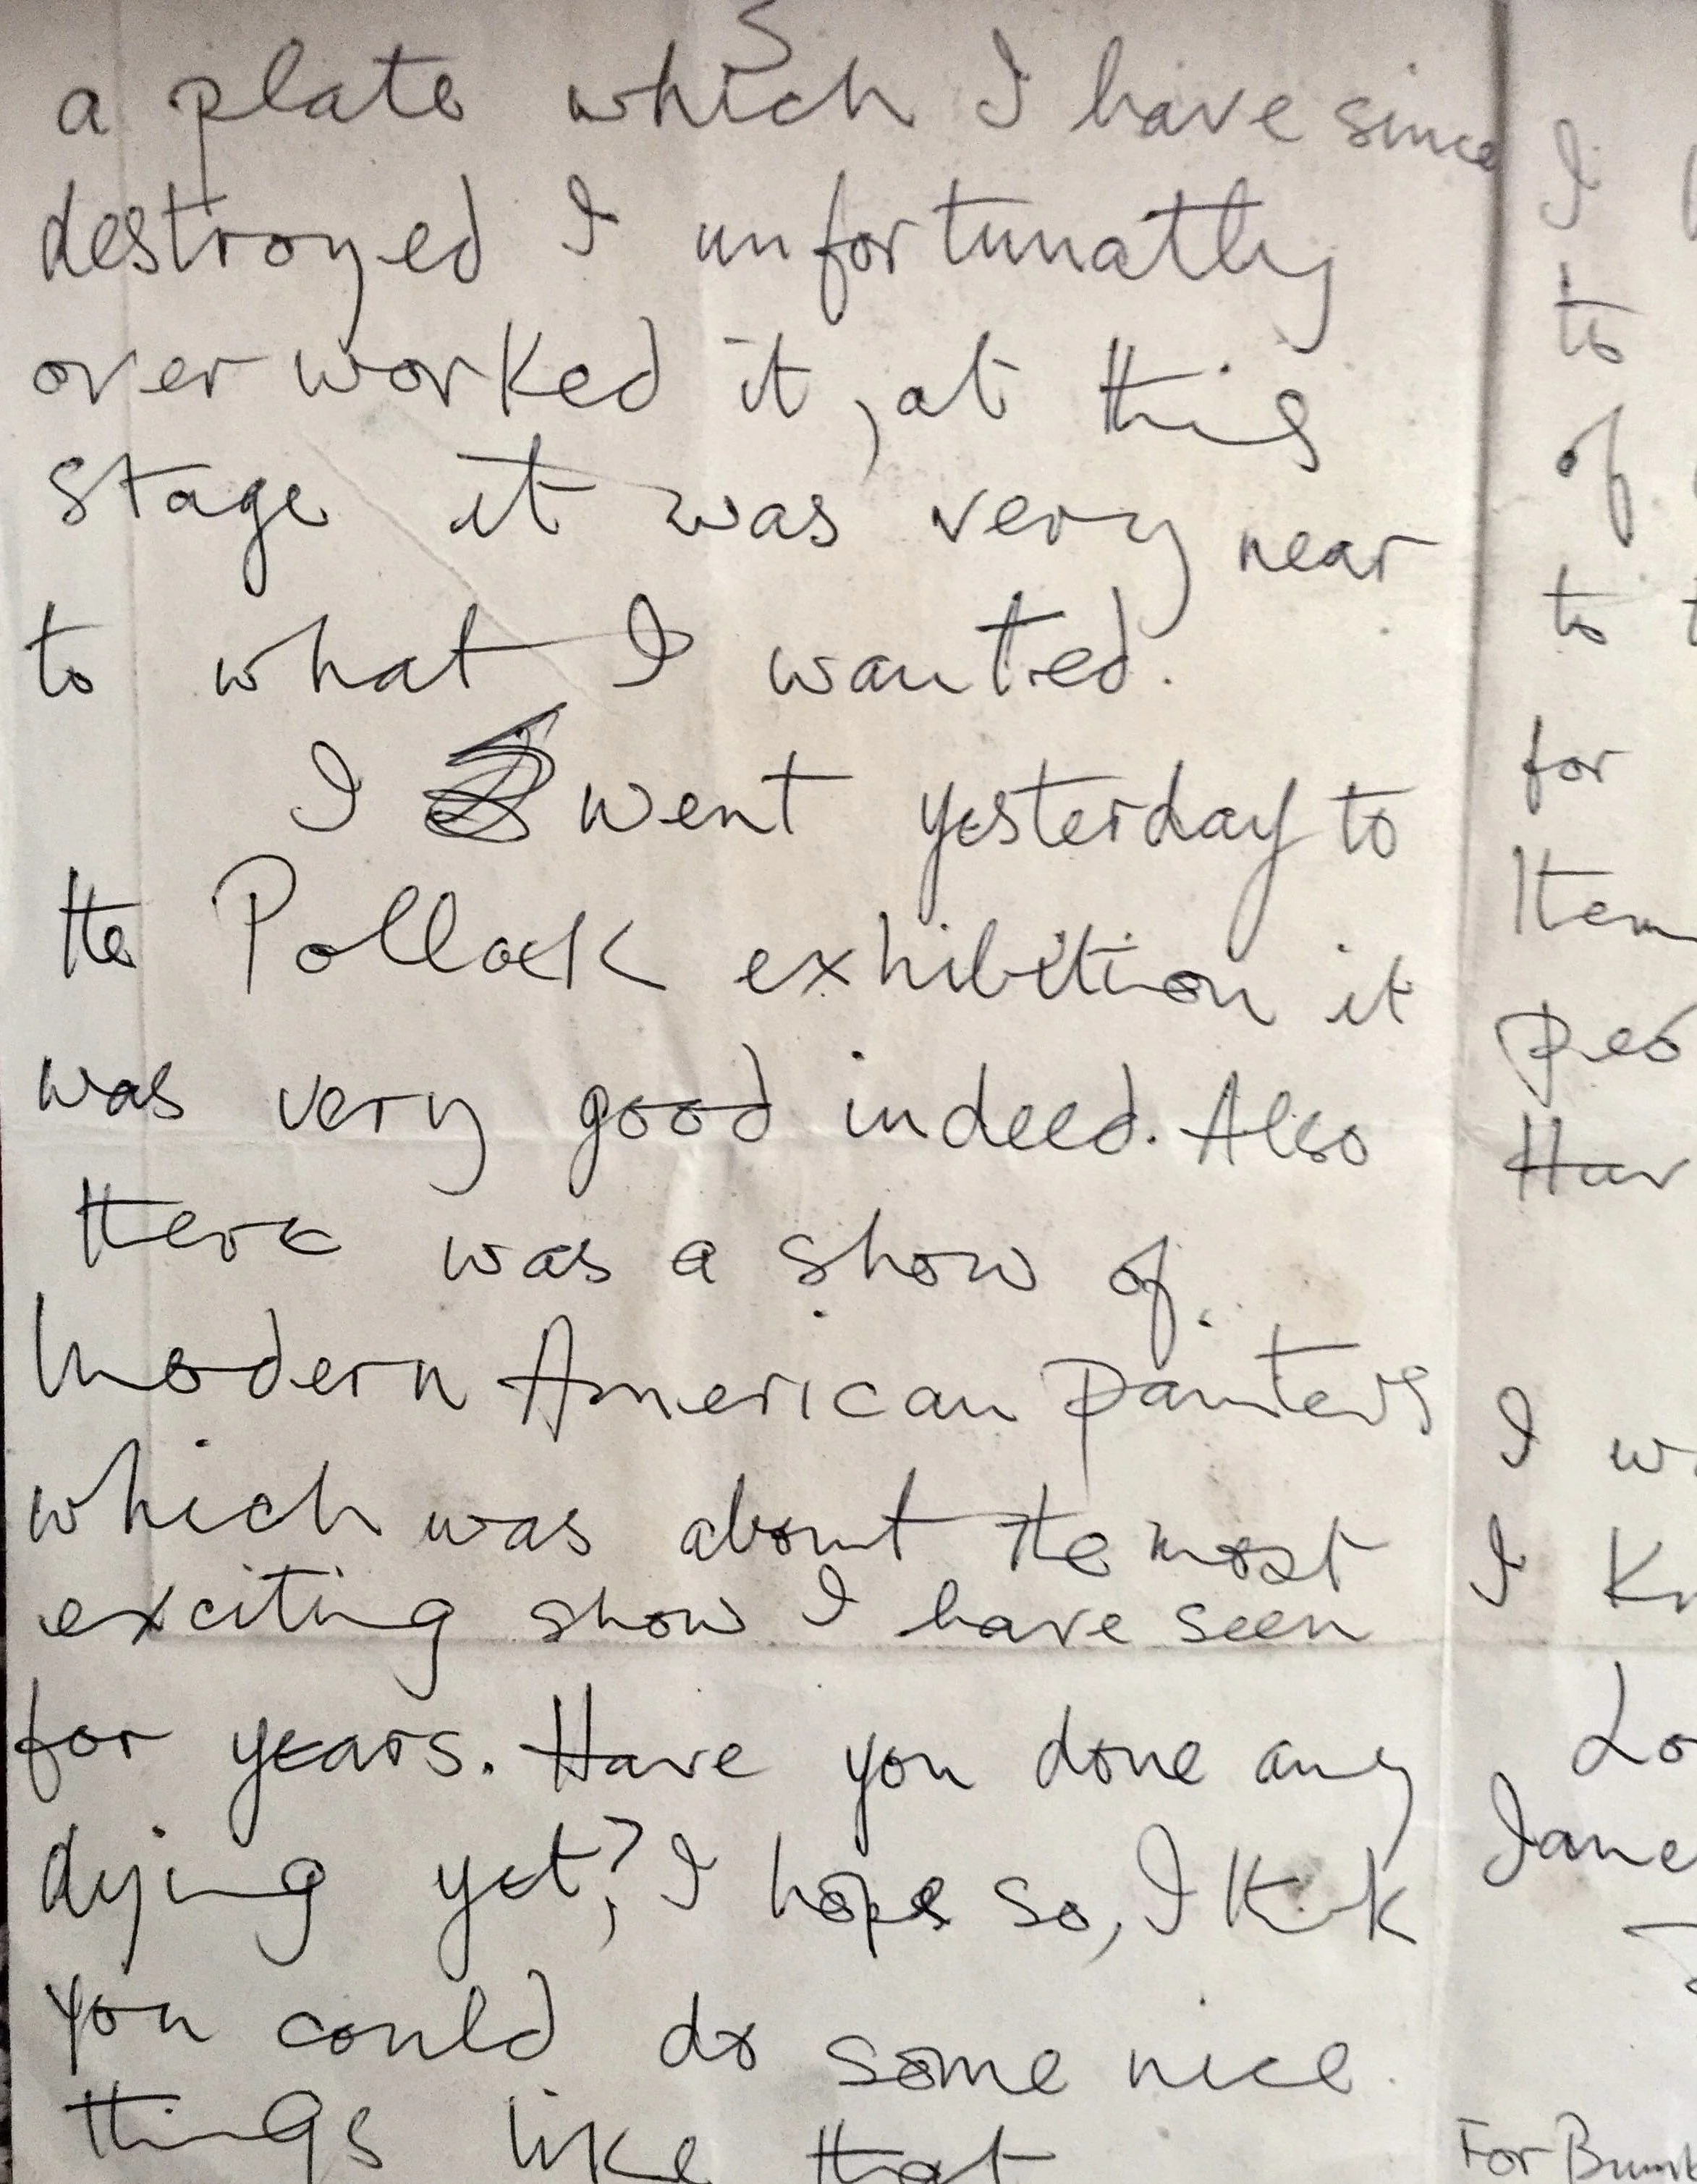 a plate which I have since
destroyed I unfortunatly
over worked it, at this
stage it was very near
to what I wanted.
I went yesterday to
the Pollock exhibition it
was very good indeed. Also
there was a show of
Modern American painters
which was about the most
exciting show I have seen
for years. Have you done any
dying yet? I hope so, I think
you could do some nice
things like that
I
to
of
to
for
Item
Hav
I
I
For